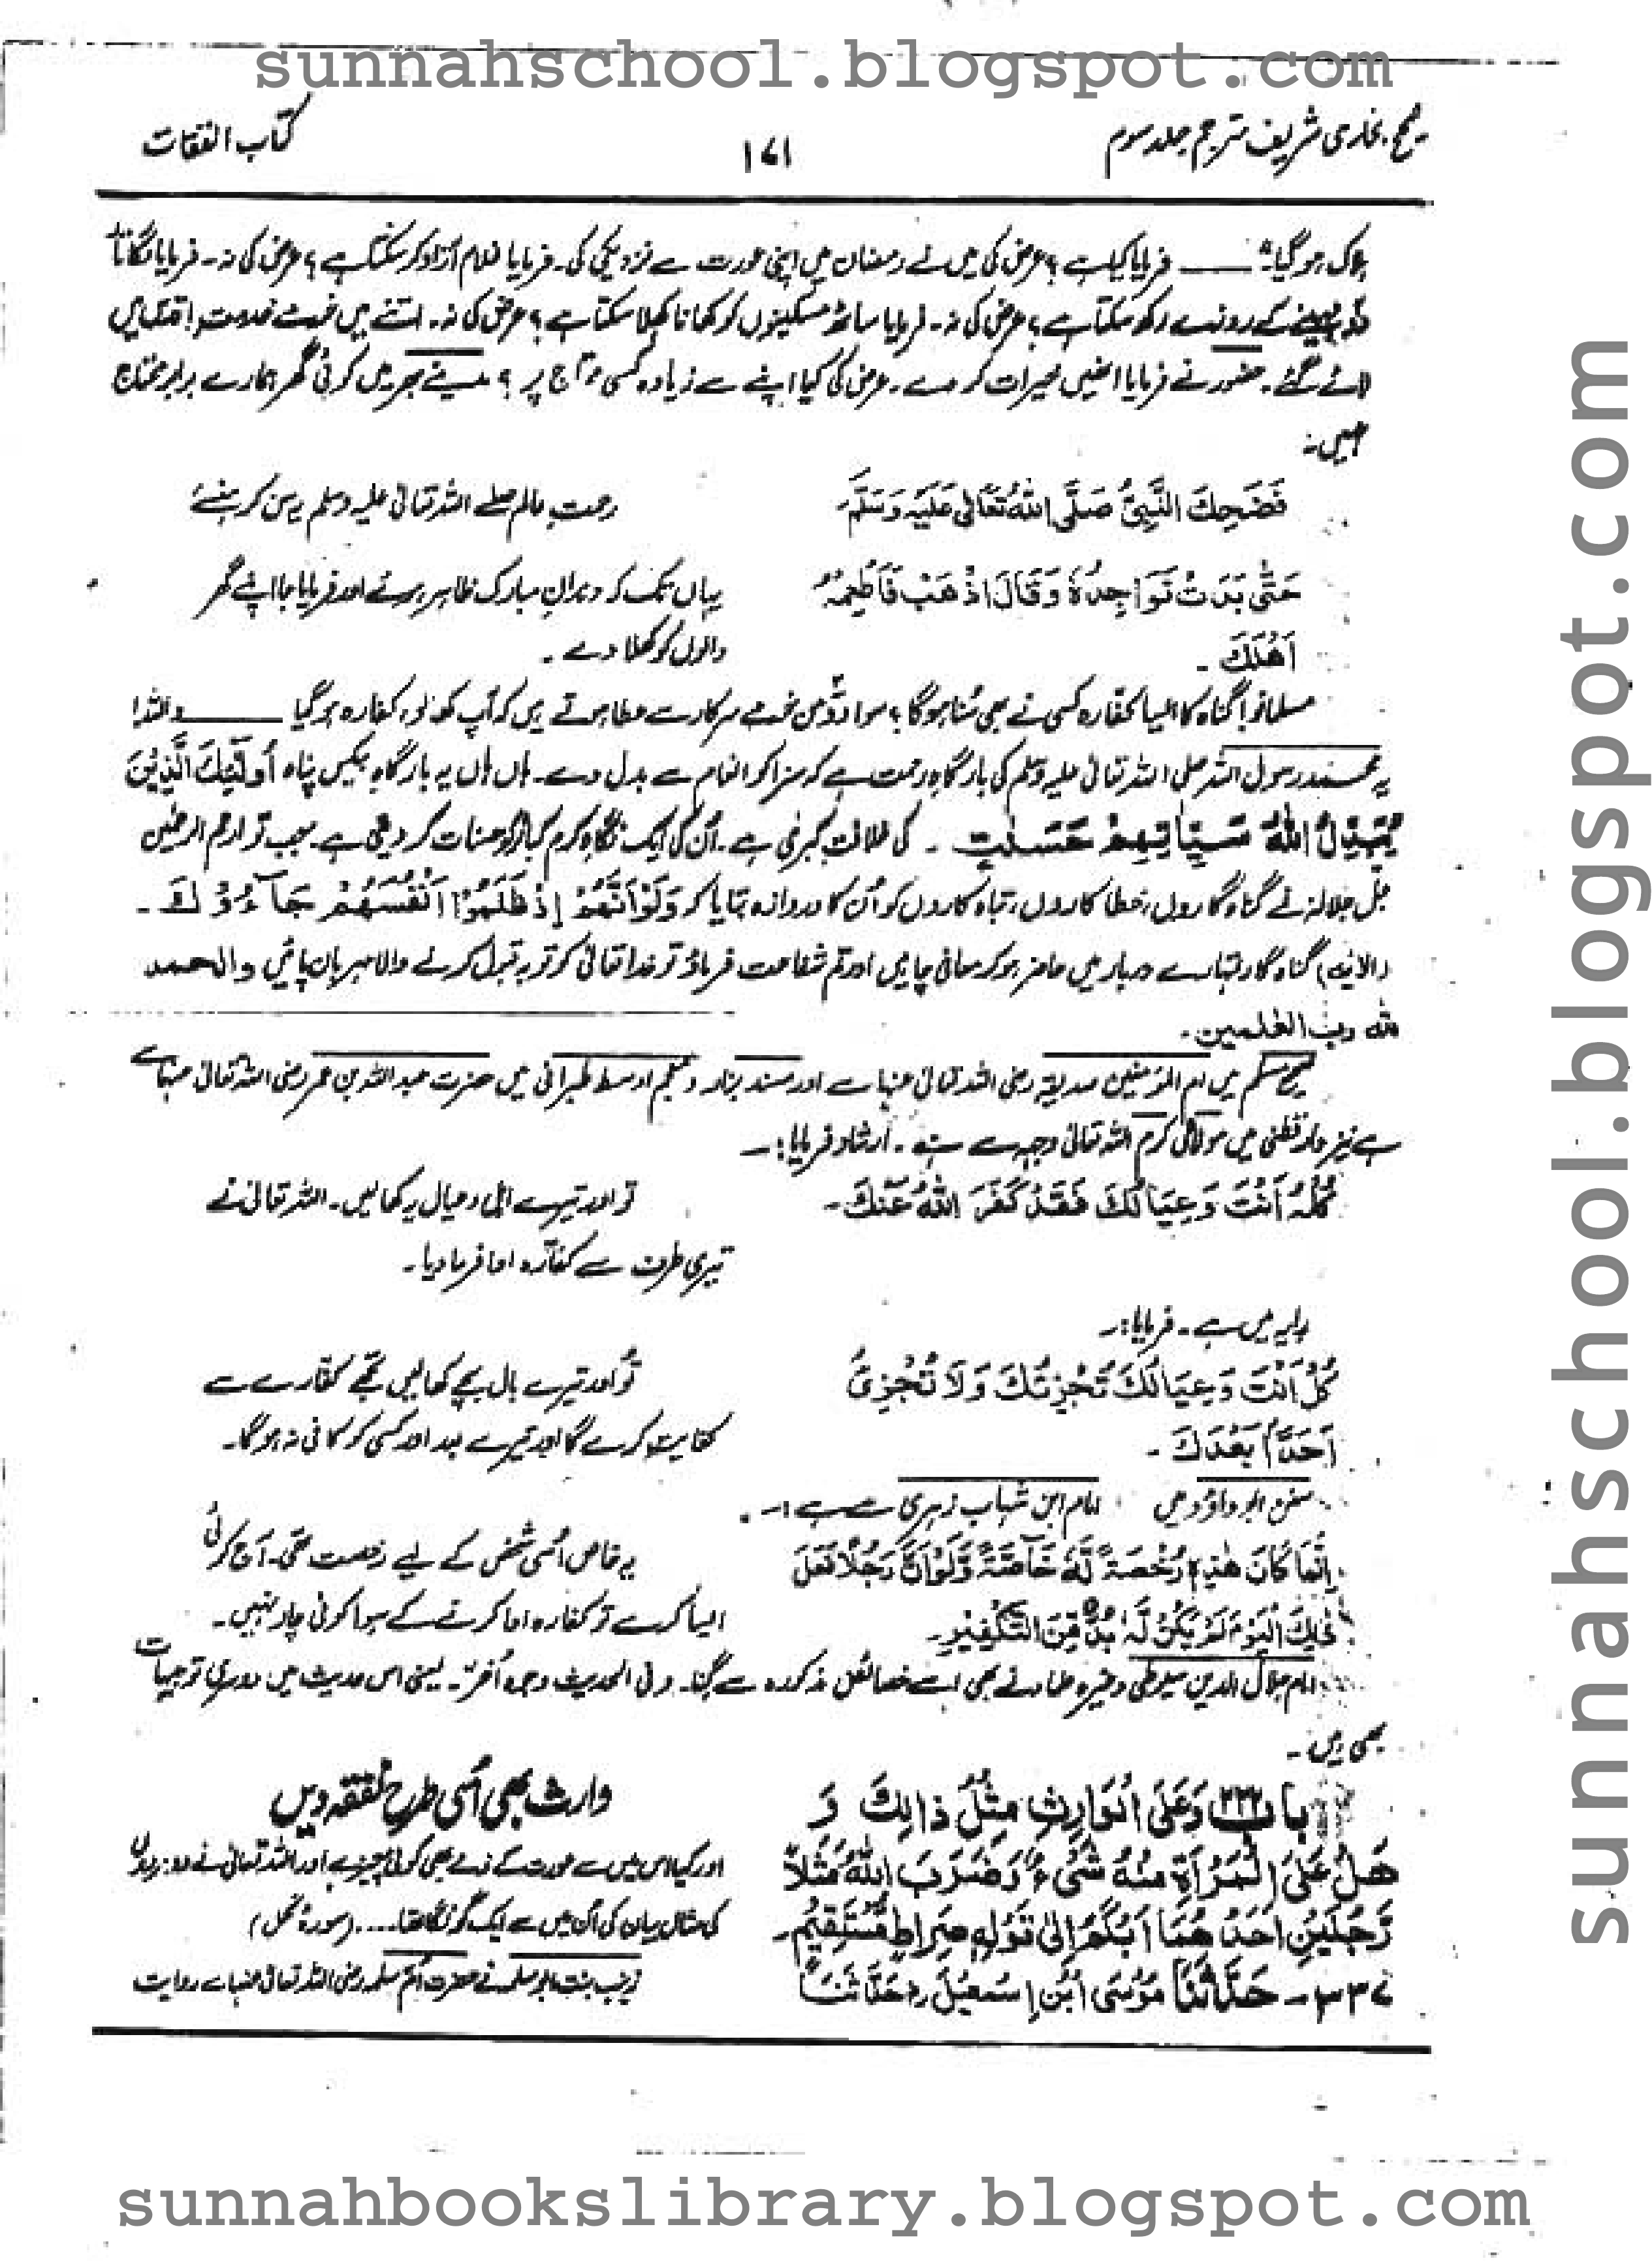 sunnahschool.blogspot.com
صحیح بخاری شریف مترجم جلد سوم
۱۷۱
کتاب النفقات
ہلاک ہو گیا۔ فرمایا کیا ہے؟ عرض کی میں نے رمضان میں اپنی عورت سے نزدیکی کی۔ فرمایا غلام آزاد کر سکتا ہے؟ عرض کی نہ۔ فرمایا لگاتار
دو مہینے کے روزے رکھ سکتا ہے؟ عرض کی نہ۔ فرمایا ساٹھ مسکینوں کو کھانا کھلا سکتا ہے؟ عرض کی نہ۔ اتنے میں خدمت اقدس میں
لائے گئے۔ حضور نے فرمایا انھیں خیرات کر دے۔ عرض کی کیا اپنے سے زیادہ کسی محتاج پر؟ مدینے بھر میں کوئی گھر ہمارے برابر محتاج
نہیں:
فَضَحِكَ النَّبِيُّ صَلَّى اللهُ تَعَالٰى عَلَيْهِ وَسَلَّمَ
رحمتِ عالم صلے اللہ تعالیٰ علیہ وسلم یہ سن کر ہنسے
حَتّٰى بَدَتْ نَوَاجِذُهٗ وَقَالَ اذْهَبْ فَاَطْعِمْهُ
یہاں تک کہ دندانِ مبارک ظاہر ہوئے اور فرمایا جا اپنے گھر
اَهْلَكَ ۔
والوں کو کھلا دے ۔
مسلمانو! گناہ کا ایسا کفارہ کسی نے بھی سُنا ہوگا؟ سوا دو من خرمے سرکار سے عطا ہوتے ہیں کہ آپ کھا لو، کفارہ ہو گیا واللہ!
یہ محمد رسول اللہ صلی اللہ تعالیٰ علیہ وسلم کی بارگاہِ رحمت ہے کہ سزا کو انعام سے بدل دے۔ ہاں ہاں یہ بارگاہِ بیکس پناہ أُولٰٓئِكَ الَّذِيْنَ
يُبَدِّلُ اللهُ سَيِّاٰتِهِمْ حَسَنٰتٍ ۔ کی خلافتِ کبریٰ ہے۔ اُن کی ایک نگاہِ کرم کبائر کو حسنات کر دیتی ہے۔ جب تو ارحم الرحمٰن
جل جلالہٗ نے گناہ گاروں، خطا کاروں، تباہ کاروں کو اُن کا دروازہ بتایا کہ وَلَوْاَنَّهُمْ اِذْ ظَلَمُوْا اَنْفُسَهُمْ جَآءُوْكَ ۔
(الآیہ) گناہ گار تمہارے دربار میں حاضر ہو کر معافی چاہیں اور تم شفاعت فرماؤ تو خدا تعالیٰ کو توبہ قبول کرنے والا مہربان پائیں والحمد
للہ رب العٰلمین۔
صحیح مسلم میں ام المؤمنین صدیقہ رضی اللہ تعالیٰ عنہا سے اور مسند بزار و معجم اوسط طبرانی میں حضرت عبداللہ بن عمر رضی اللہ تعالیٰ عنہما سے
ہے نیز دارقطنی میں مولا علی کرم اللہ تعالیٰ وجہہ سے ہے ۔ ارشاد فرمایا:۔
كُلْهُ اَنْتَ وَعِيَالُكَ فَقَدْ كَفَّرَ اللهُ عَنْكَ۔
تو اور تیرے اہل و عیال یہ کھالیں۔ اللہ تعالیٰ نے
تیری طرف سے کفارہ ادا فرما دیا ۔
ہدایہ میں ہے ۔ فرمایا:۔
كُلْ اَنْتَ وَعِيَالُكَ تُجْزِئُكَ وَلَا تُجْزِئُ
تُو اور تیرے بال بچے کھالیں تجھے کفارے سے
اَحَدًا بَعْدَكَ ۔
کفایت کرے گا اور تیرے بعد اور کسی کو کافی نہ ہوگا۔
سنن ابوداؤد میں امام ابن شہاب زہری سے ہے:۔
اِنَّمَا كَانَ هٰذِهٖ رُخْصَةً لَّهٗ خَآصَّةً وَّلَوْاَنَّ رَجُلًا فَعَلَ
یہ خاص اُسی شخص کے لیے رخصت تھی۔ آج کوئی
ذٰلِكَ الْيَوْمَ لَمْ يَكُنْ لَّهٗ بُدٌّ مِّنَ التَّكْفِيْرِ۔
ایسا کرے تو کفارہ ادا کرنے کے سوا کوئی چارہ نہیں۔
امام جلال الدین سیوطی وغیرہ علماء نے بھی اسے خصائص مذکورہ سے گنا۔ وفی الحدیث وجوہ اُخر۔ یعنی اس حدیث میں دوسری توجیہات
بھی ہیں ۔
بابُ ٢٣٢ وَعَلَى الْوَارِثِ مِثْلُ ذَالِكَ وَ
وارث بھی اُسی طرح نفقہ دیں
هَلْ عَلَى الْمَرْأَةِ مِنْهُ شَيْءٌ وَضَرَبَ اللهُ مَثَلًا
اور کیا اس میں سے عورت کے ذمے بھی کوئی چیز ہے اور اللہ تعالیٰ نے دو مردوں
رَّجُلَيْنِ اَحَدُهُمَا اَبْكَمُ اِلٰى قَوْلِهٖ صِرَاطٍ مُّسْتَقِيْمٍ۔
کی مثال بیان کی اُن میں سے ایک گونگا تھا.... (سورۂ نحل)
حَدَّثَنَا مُوْسَى ابْنُ اِسْمٰعِيْلَ حَدَّثَنَا
زینب بنت ابو سلمہ نے حضرت اُم سلمہ رضی اللہ تعالیٰ عنہا سے روایت
sunnahschool.blogspot.com
sunnahbookslibrary.blogspot.com